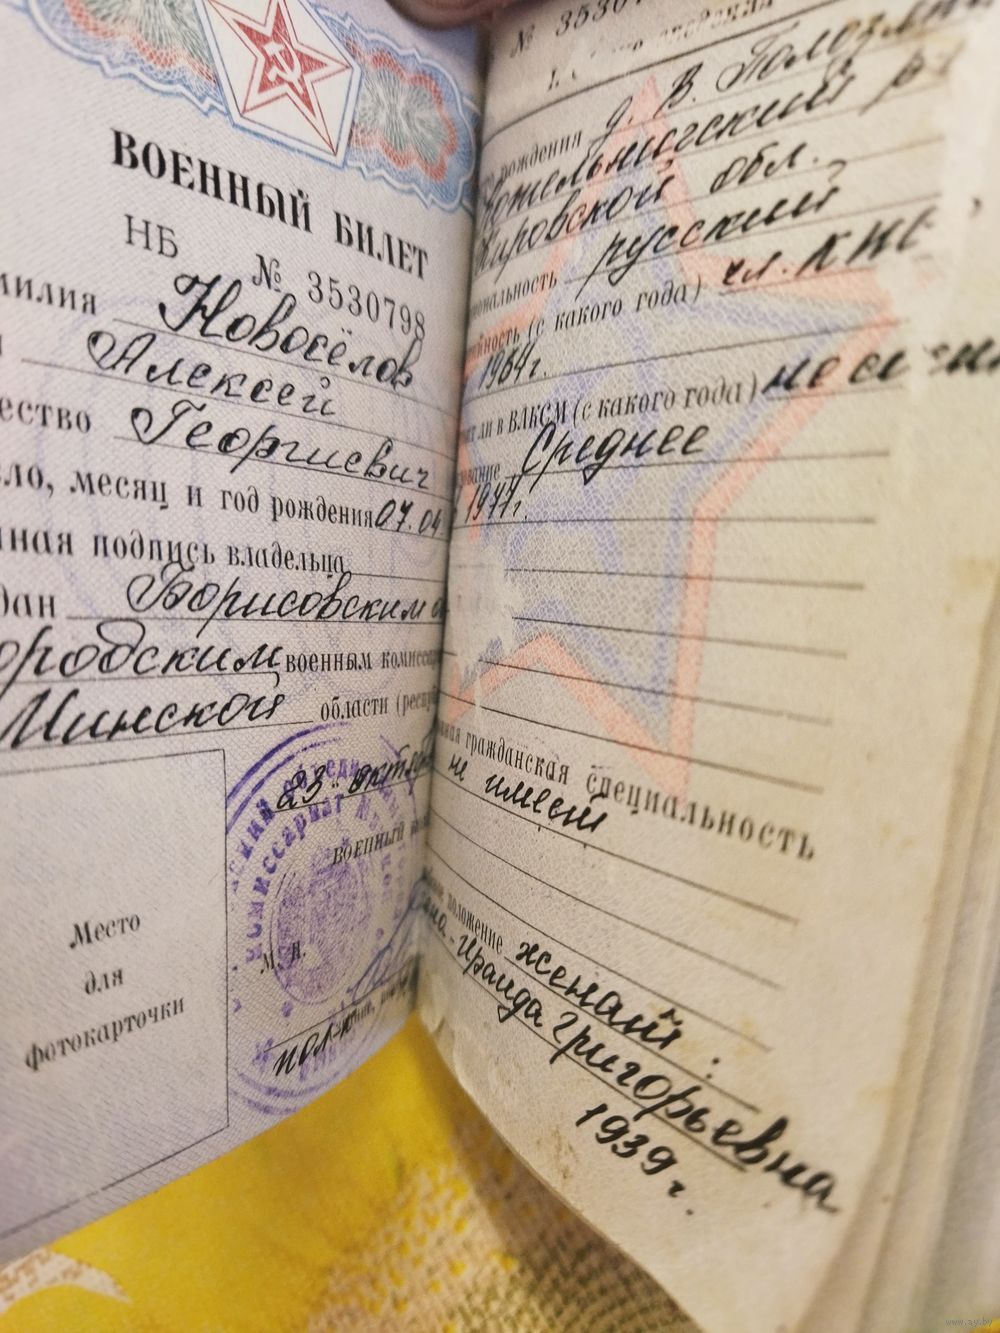 ВОЕННЫЙ БИЛЕТ
НБ № 3530798
милия Новосёлов
Алексей
ество Георгиевич
ло, месяц и год рождения 07.04
нная подпись владельца
дан Борисовским
ородским военным комисса
Минской области (респу
23 октяб
военный
Место
для
фотокарточки
М. п.
пол-к
№ 3530
рождения д. В.
Котельничский р
Кировской обл.
иональность русский
ийность (с какого года) чл. КПС
1964г.
ли в ВЛКСМ (с какого года) не
ование Среднее
1977г.
вная гражданская специальность
не имеет
ное положение женат:
Ираида Григорьевна
1939 г.
www.ay.by